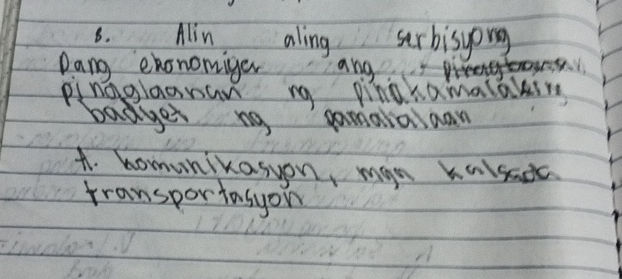 8. Alin aling serbisyong
Pang ekonomiya ang
pinaglaanan ng pinakamalaking
badyet ng pamahalaan
A. komunikasyon, mga kalsada
transportasyon